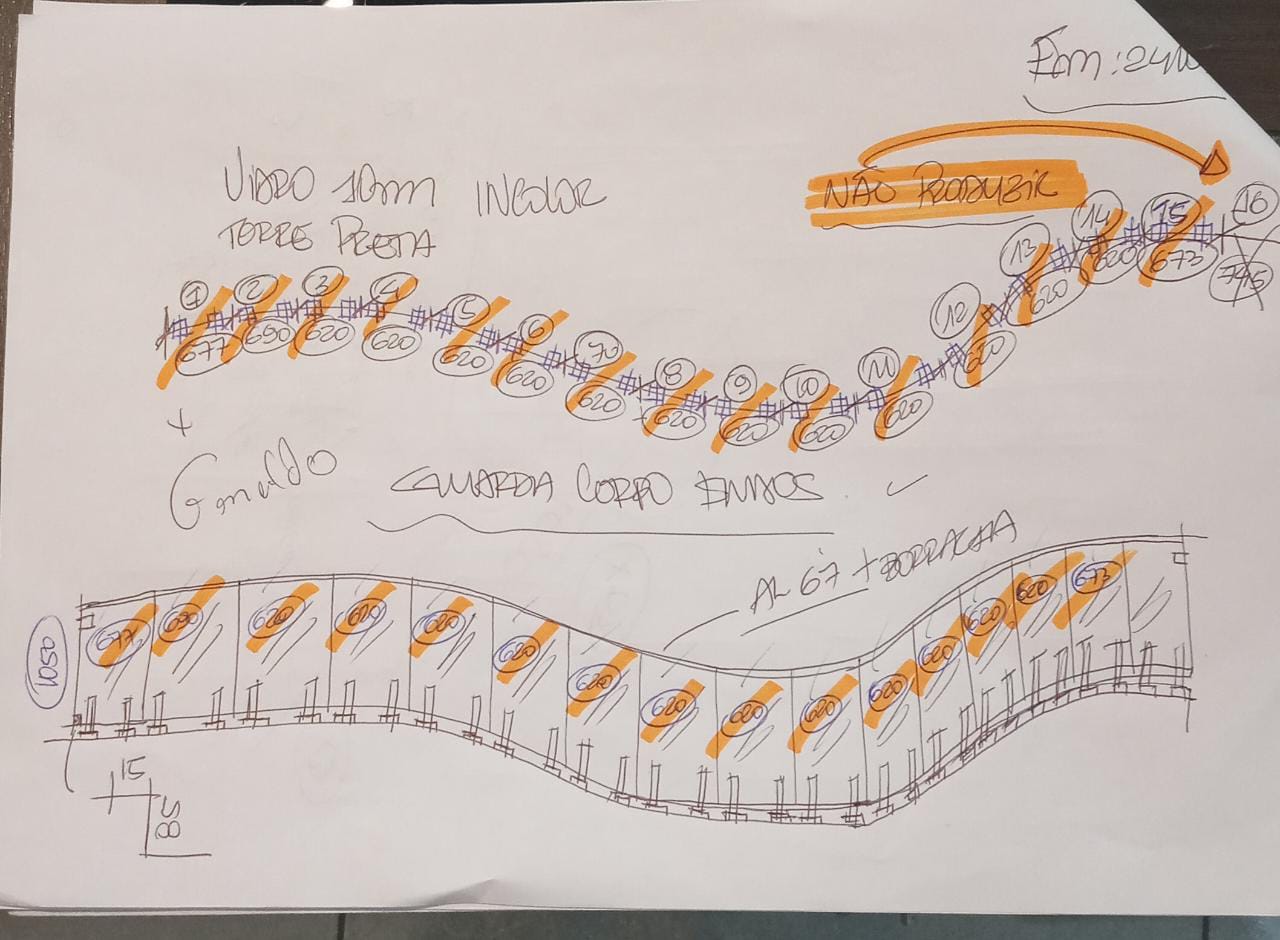 VIDRO 10mm INCOLOR
TORRE PRETA
NÃO PRODUZIR
1 2 3 4 5 6 7 8 9 10 11 12 13 14 15 16
677 690 620 620 620 620 620 620 620 620 620 620 620 620 673
GUARDA CORPO
AL 67 + BORRACHA
1050
677 690 620 620 620 620 620 620 620 620 620 620 620 620 673
15
85